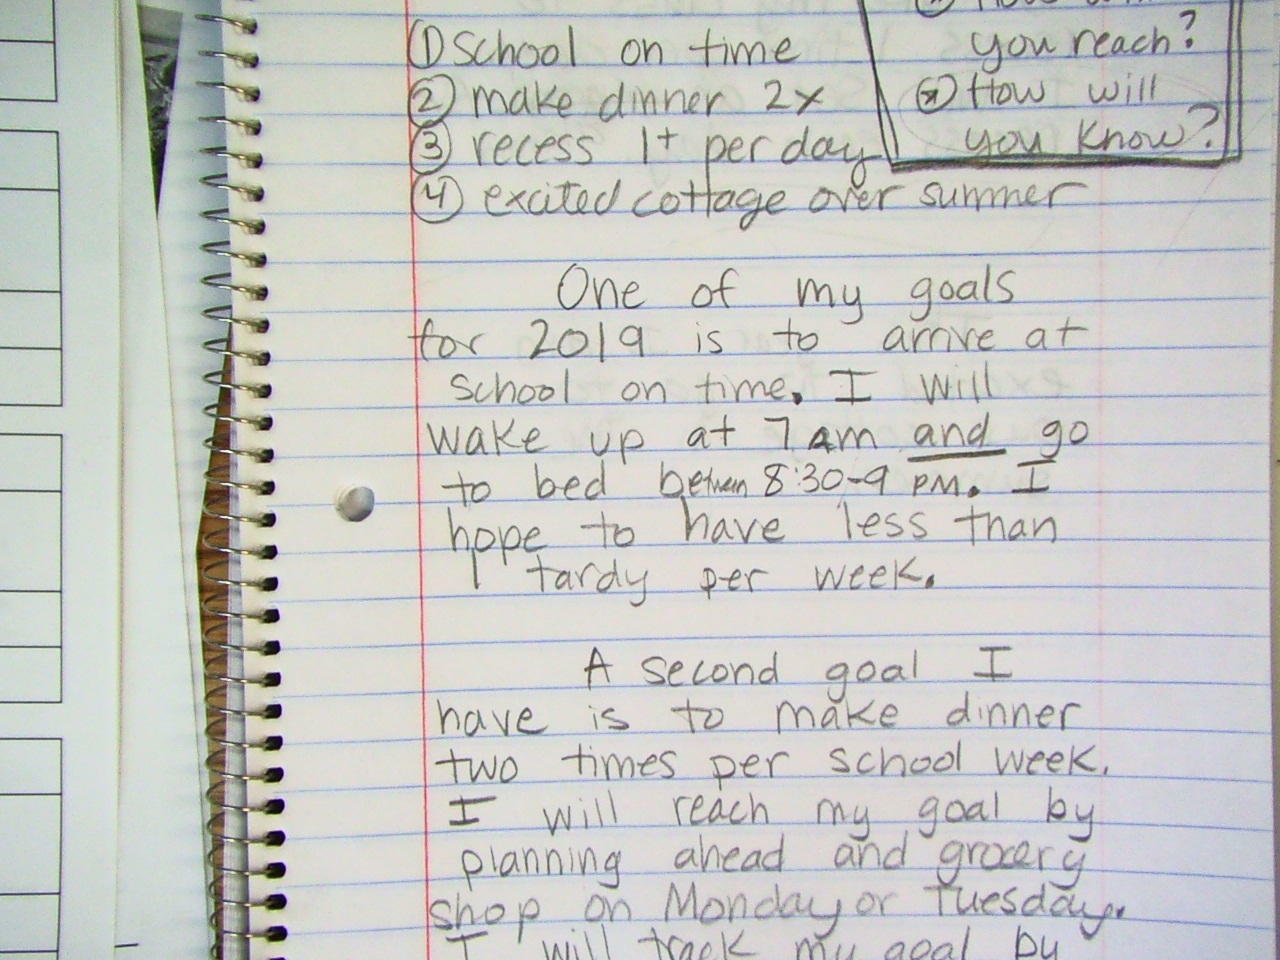 ① School on time
② make dinner 2x
③ recess 1+ per day
④ excited cottage over summer
you reach?
How will
you know?
One of my goals
for 2019 is to arrive at
school on time. I will
wake up at 7 am and go
to bed between 8:30-9 PM. I
hope to have less than
1 tardy per week.
A second goal I
have is to make dinner
two times per school week.
I will reach my goal by
planning ahead and grocery
shop on Monday or Tuesday.
I will track my goal by